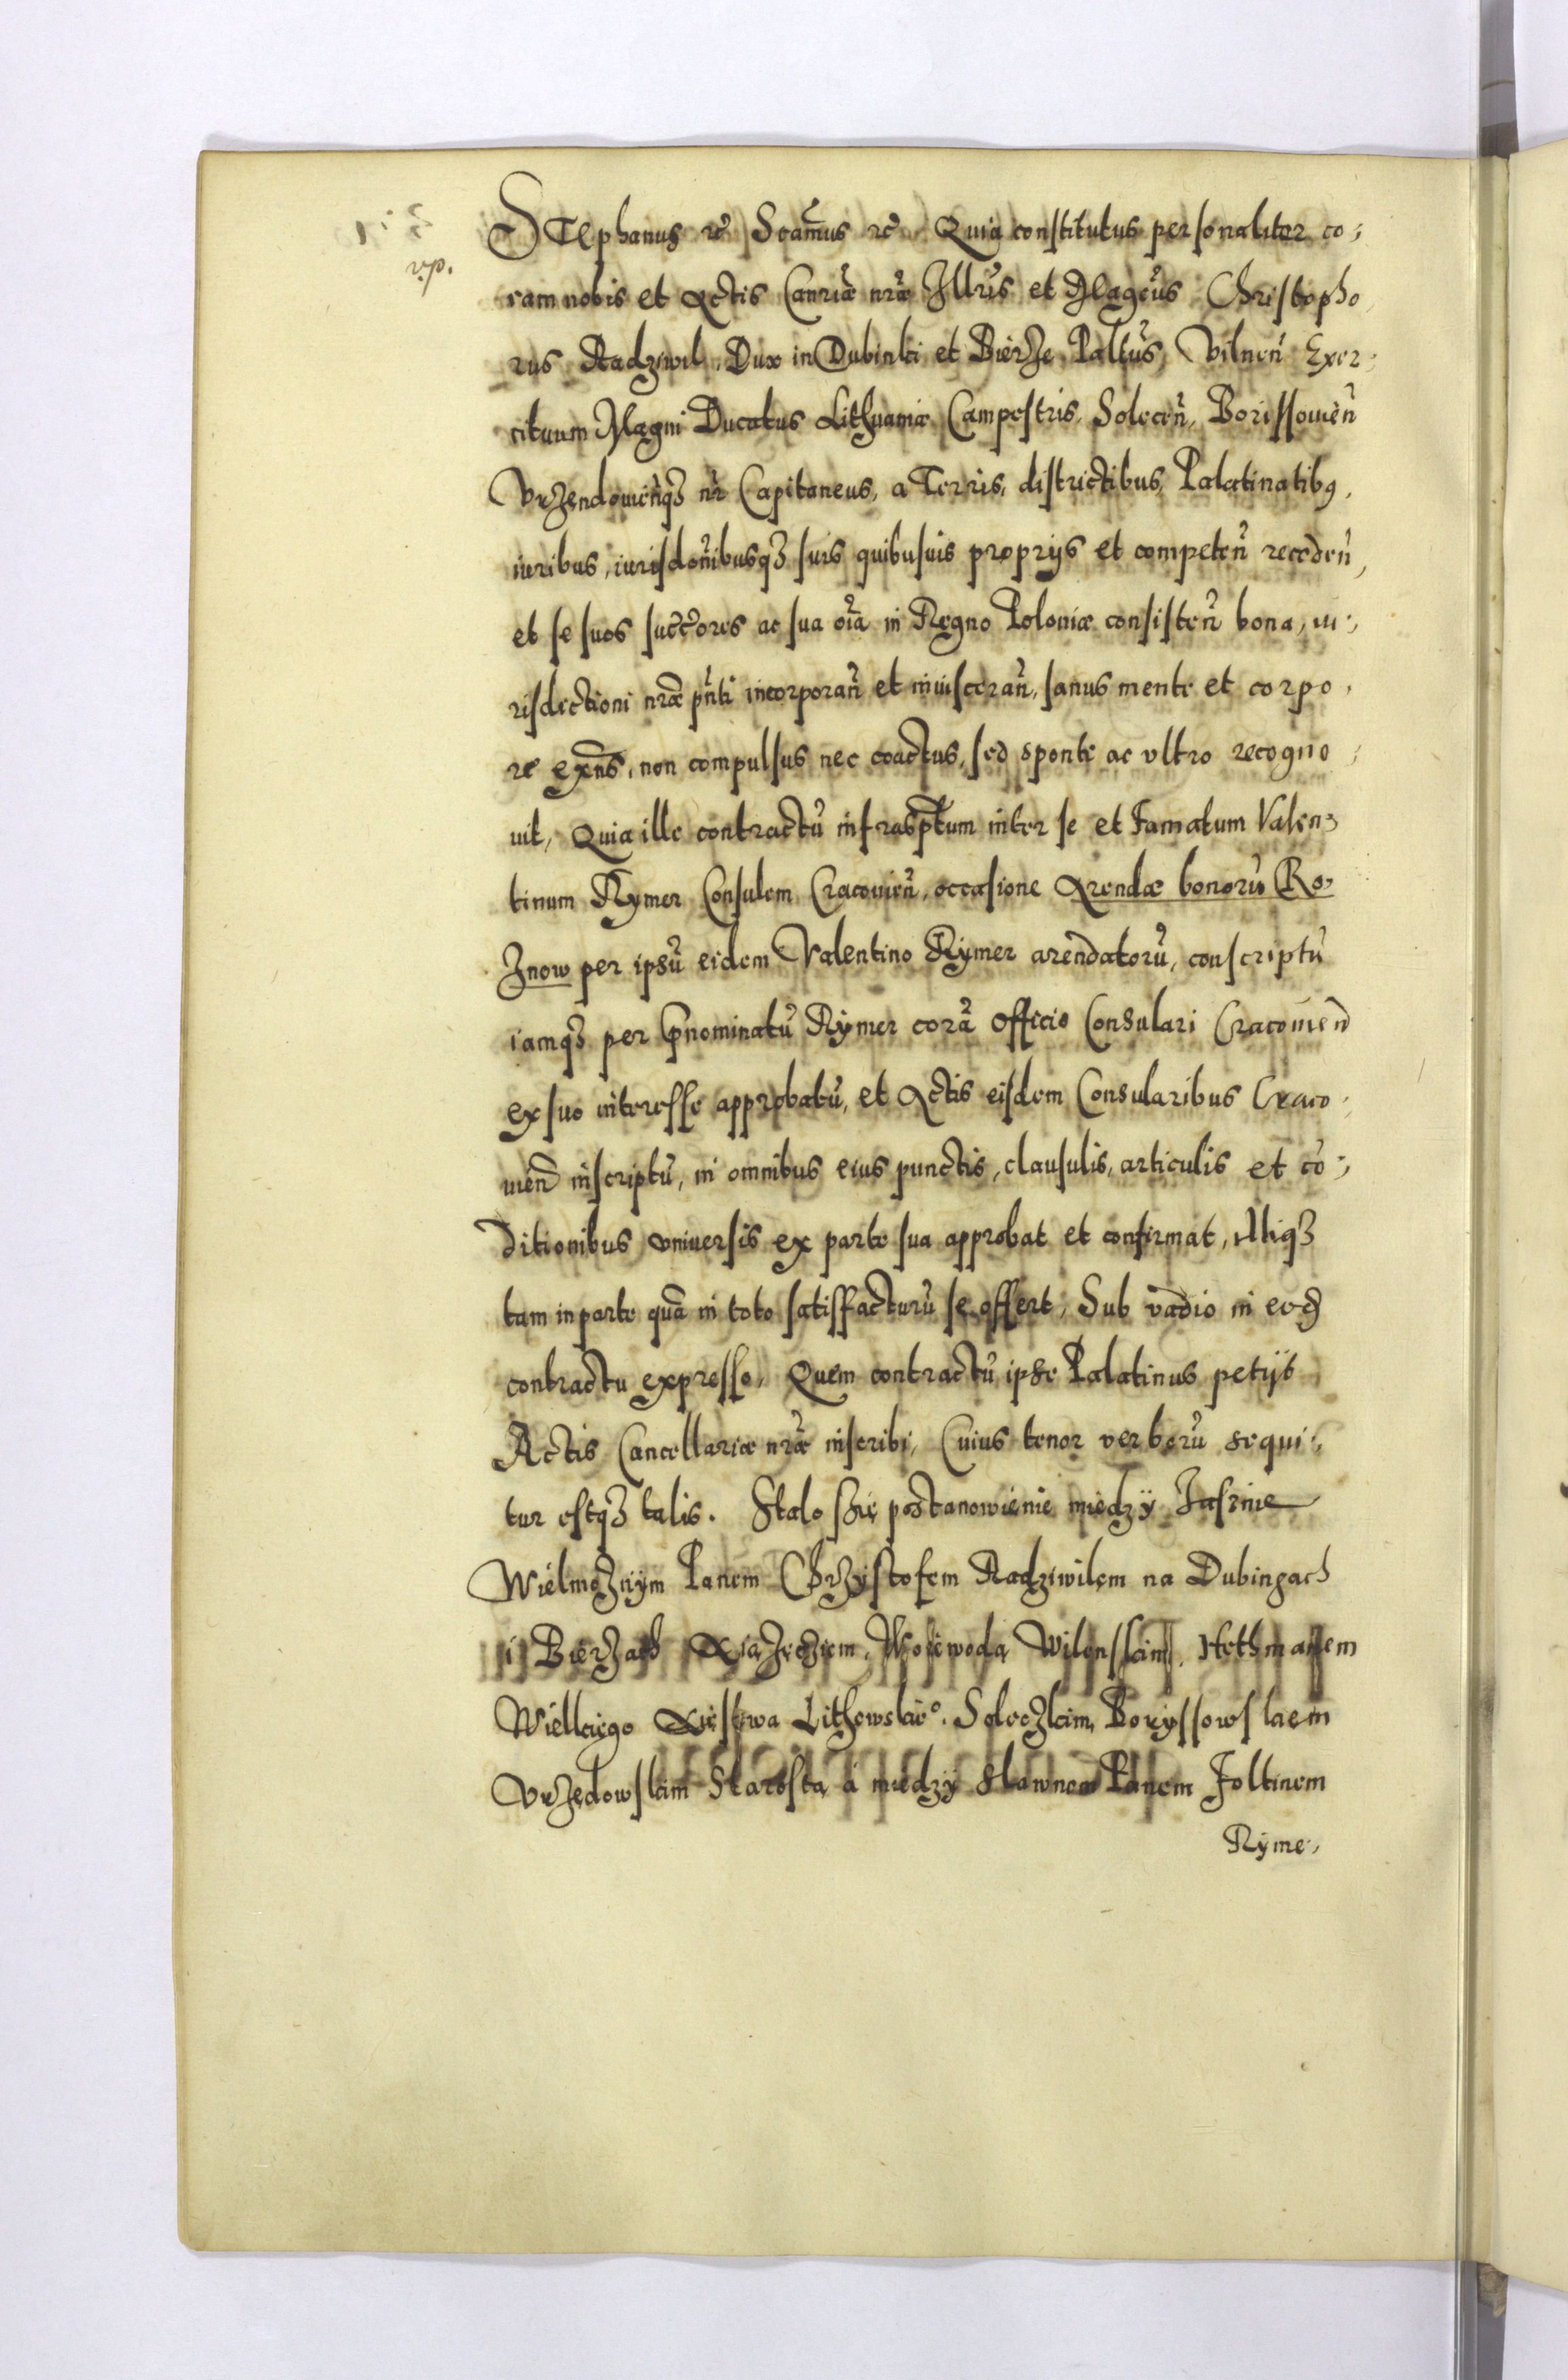 STephanus etc̃ Scamus etc̃ Quia constitutus personaliter co-
ram nobis et Actis Canriæ nr̃æ Illr̃is et Magcus Christopho
rus Radziwil, Dux in Dubinki et Bierze, Paltus, Vilneñ Exer-
cituum Magni Ducatus Lithuaniæ Campestris, Soleceñ, Borissoueñ
Vrzendoueñqz nr̃ Capitaneus, a Terris, districtibus, Palatinatibꝰ,
iuribus, iurisdoñibusqz suis quibusuis proprijs et competeñ recedeñ,
et se suos succores ac sua oĩa in Regno Poloniæ consisteñ bona, iu-
risdictioni nr̃æ pñti incorporañ et inuiscerañ, sanus mente et corpo-
re exñs, non compulsus nec coactus, sed sponte ac vltro recogno
uit, Quia ille contractũ infrasptum inter se et Famatum Valen-
tinum Rymer Consulem Cracouieñ, occasione Arendæ bonorũ Ro-
Znow per ipsũ eidem Valentino Rymer arendatorũ, conscriptũ
iamqz per pnominatũ Rymer corã Officio Consulari Cracouien
ex suo interesse approbatũ, et Actis eisdem Consularibus Craco-
uien inscriptũ, in omnibus eius punctis, clausulis, articulis et cõ-
ditionibus vniuersis ex parte sua approbat et confirmat, illiqz
tam in parte quã in toto satisffacturũ se offert, Sub vadio in eod
contractu expresso, Quem contractũ ipse Palatinus petijt
Actis Cancellariæ nr̃æ inscribi, Cuius tenor verborũ sequi-
tur estqz talis. Stalo szię postanowienie miedzÿ Jasznie
Wielmoznÿm Panem Chrzÿstofem Radziwilem na Dubingach
i Bierzach Xiążęcziem, Woiewodą Wilenskim, Hethmanem
Wielkiego Xięstwa Lithewskie°. Soleczkim, Borÿssowskiem
Vrzędowskim Starostą á miedzÿ Slawnem Panem Foltinem
Rÿme-